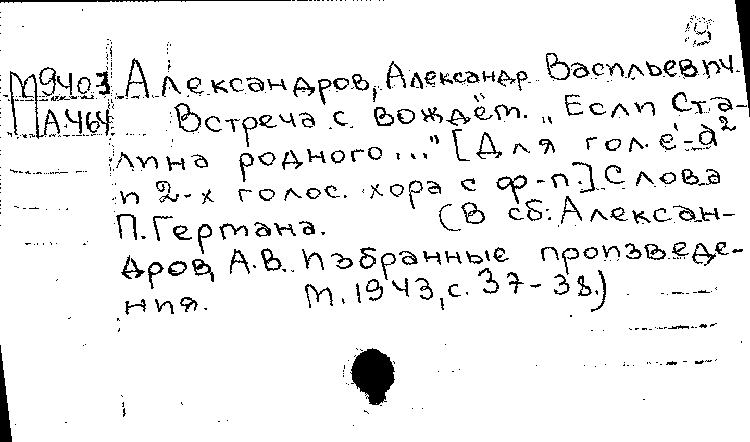 19
М9403 Александров, Александр Васильевич.
А.464 Встреча с вождём. „Если Ста-
лина родного..." [Для гол. e¹-a²
и 2-х голос. хора с ф-п.] Слова
П. Германа. (В сб: Алексан-
дров, А.В. Избранные произведе-
ния. М. 1943, с. 37-38.)